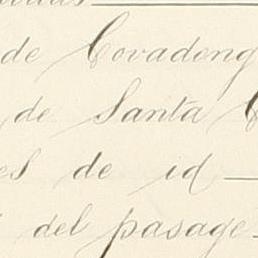 de Covadong
de Santa
es de id
del pasage